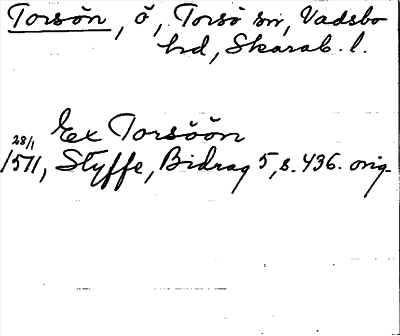 Torsön, ö, Torsö sn, Vadsbo
hd, Skarab. l.
Ex Torsöön
28/1
1571, Styffe, Bidrag 5, s. 436. orig.